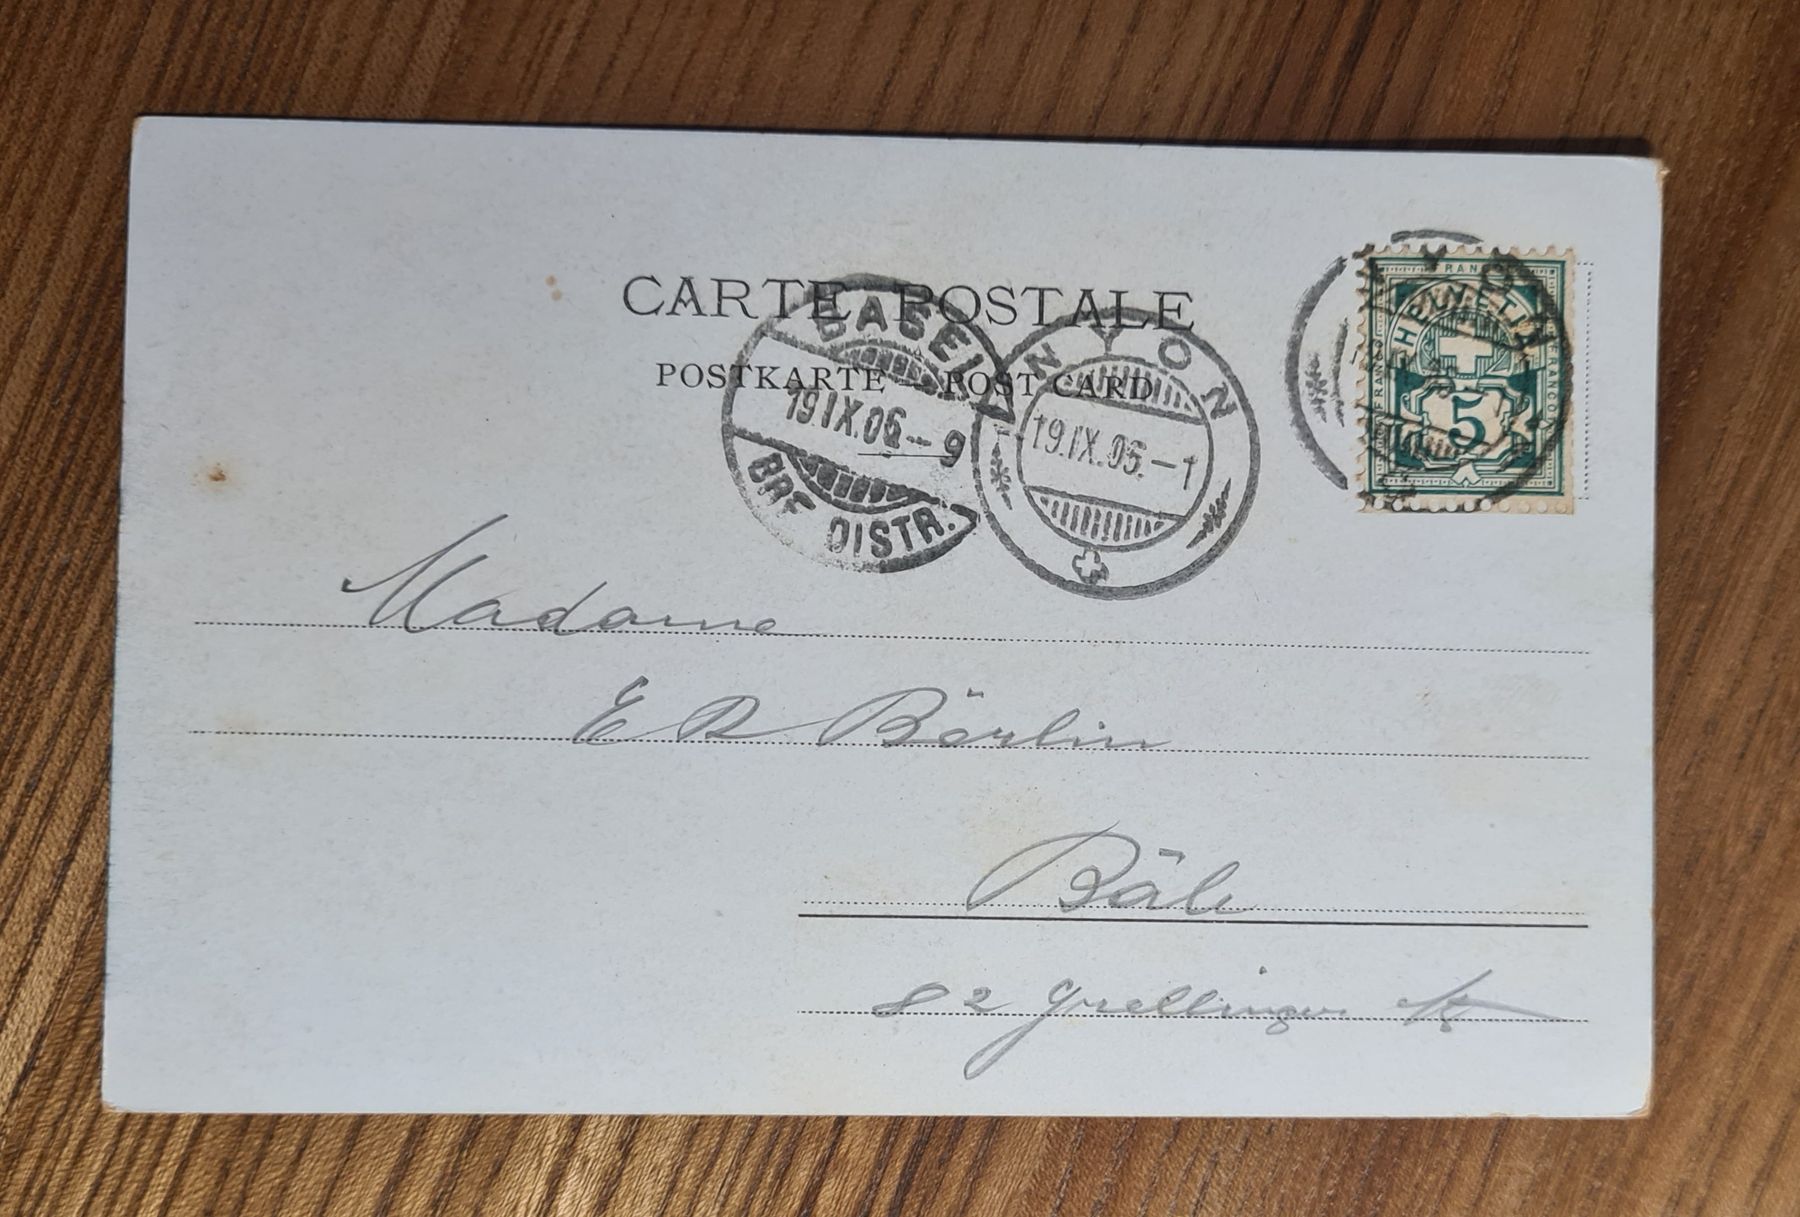 CARTE POSTALE
POSTKARTE — POST CARD
BASEL
19.IX.06.-9
BRF. DISTR.
NYON
19.IX.06.-1
FRANCO
FRANCO
FRANCO
HELVETIA
5
Madame
E R Börlin
Bâle
82 Grellinger St